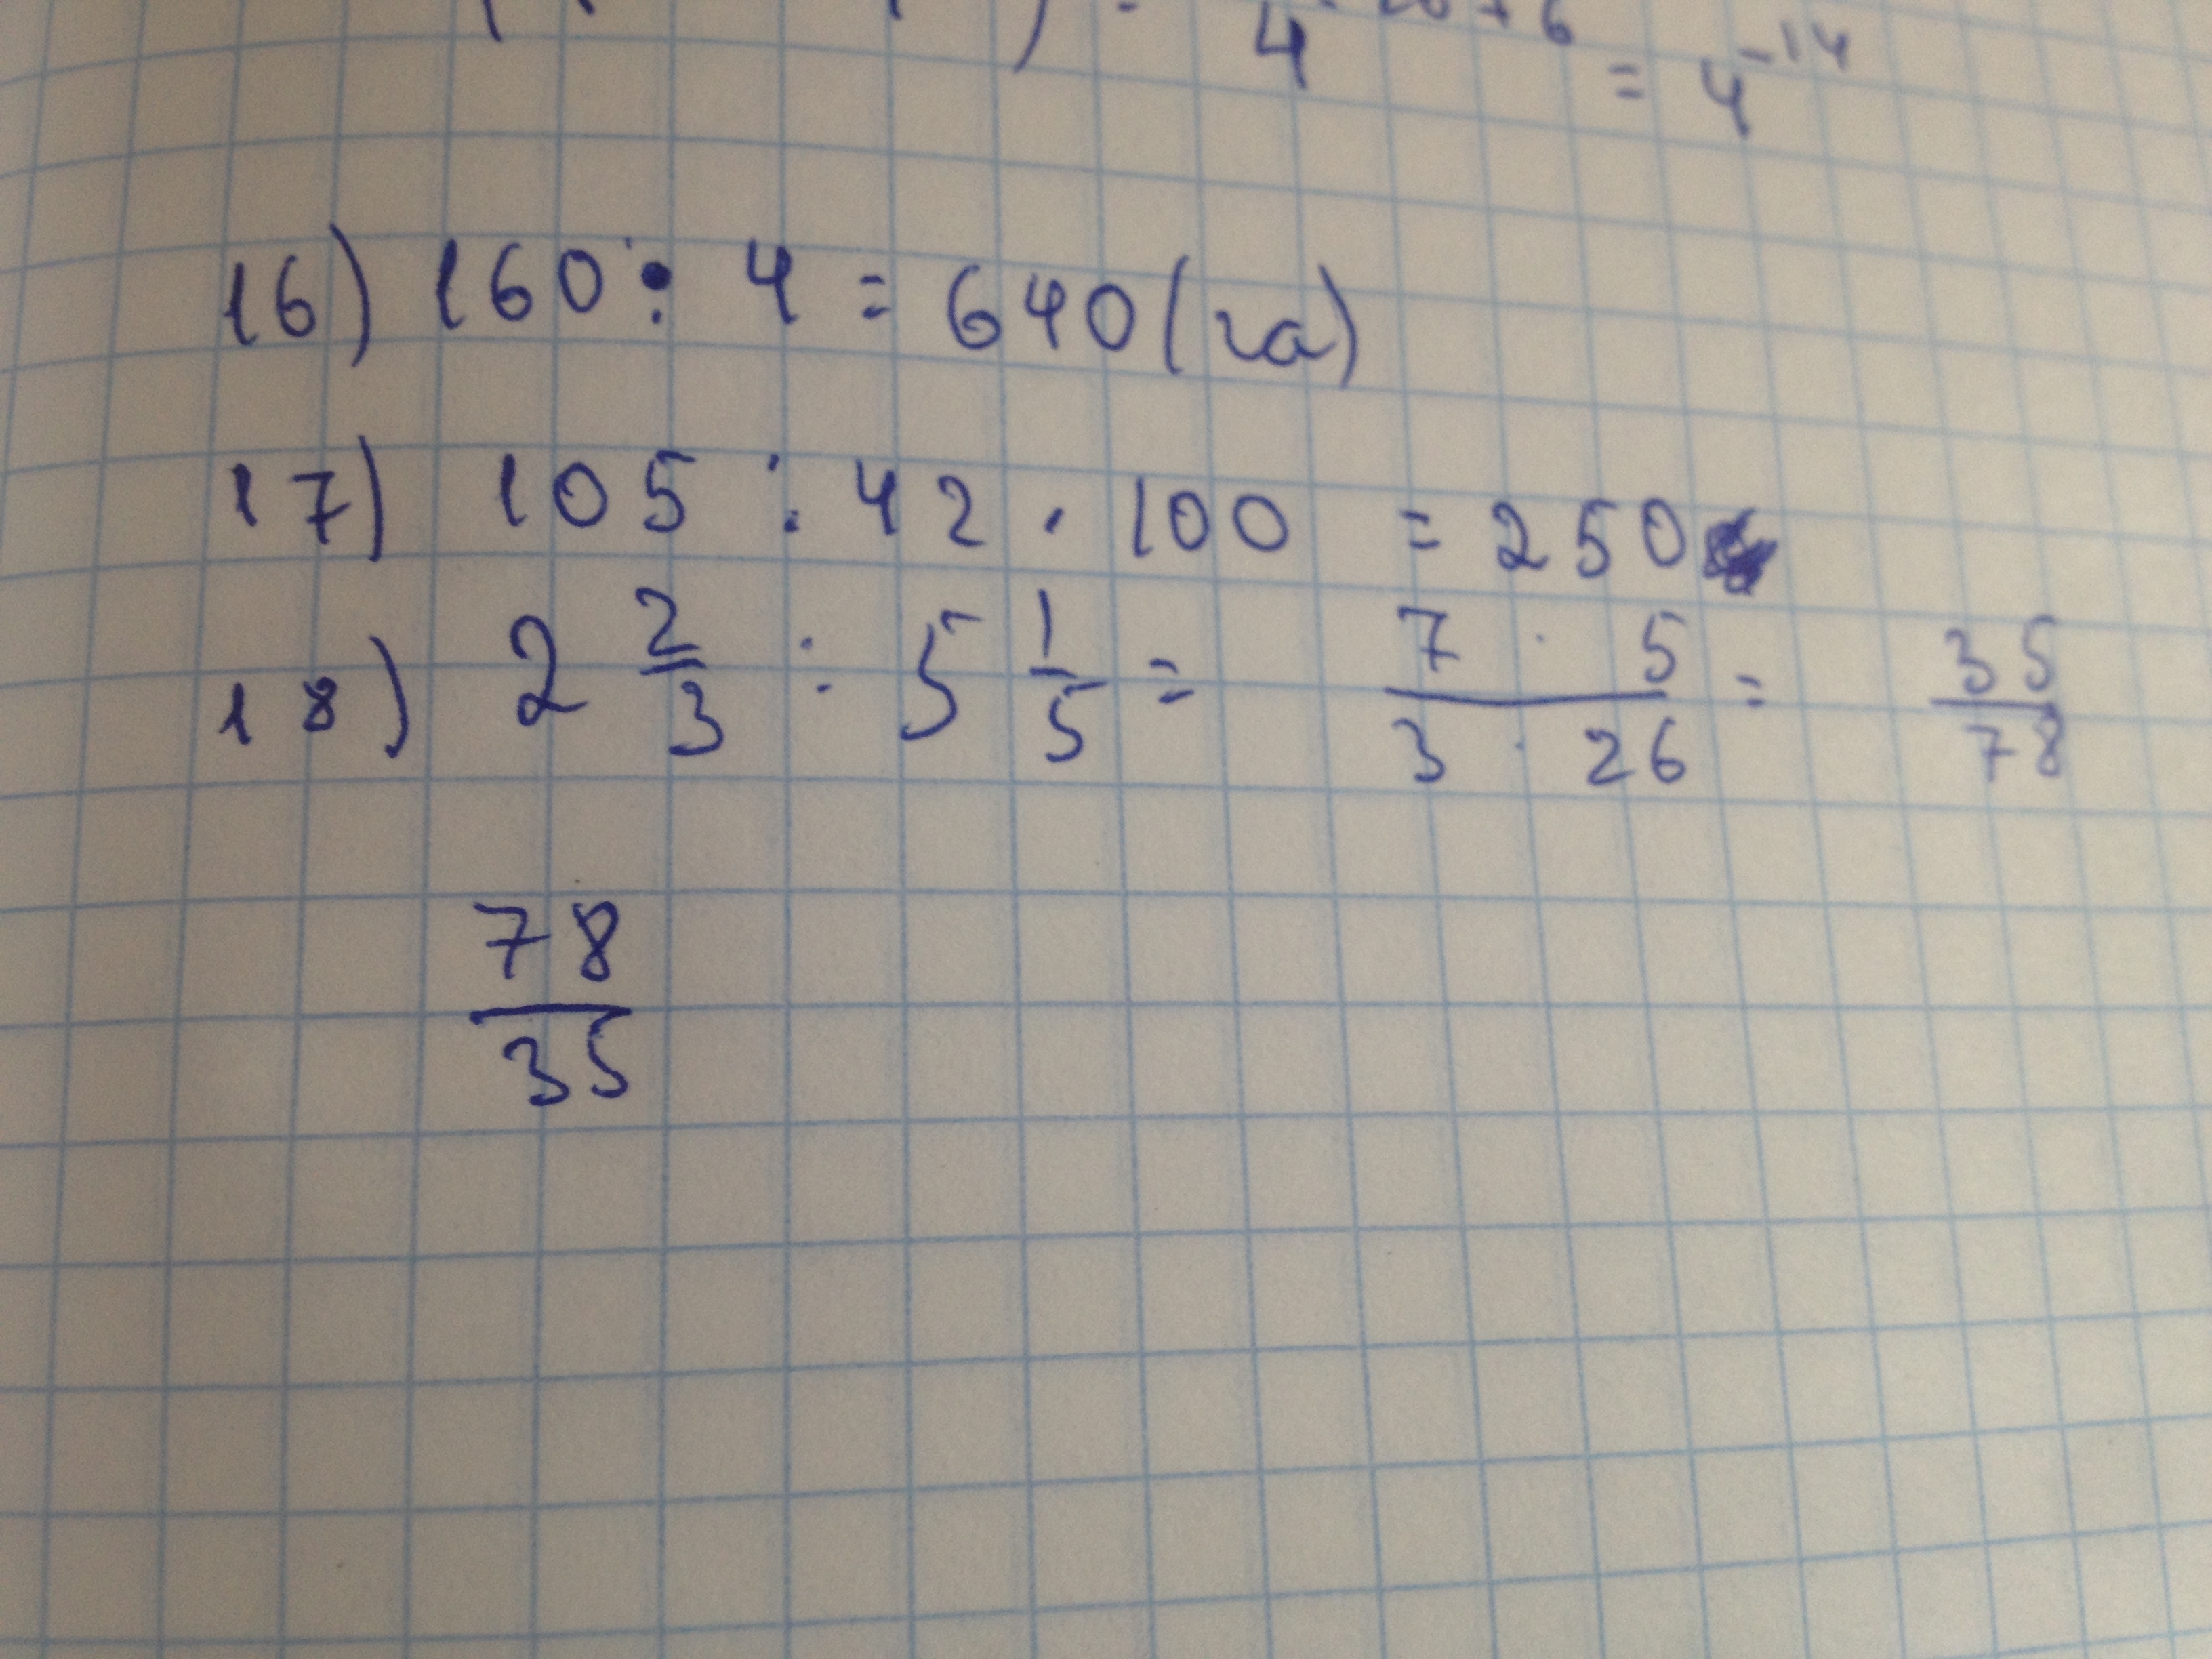 4 + 6 = 4^-14
16) 160 : 4 = 640 (га)
17) 105 : 42 · 100 = 250
18) 2 2/3 : 5 1/5 = 7 · 5 / 3 · 26 = 35/78
78/35